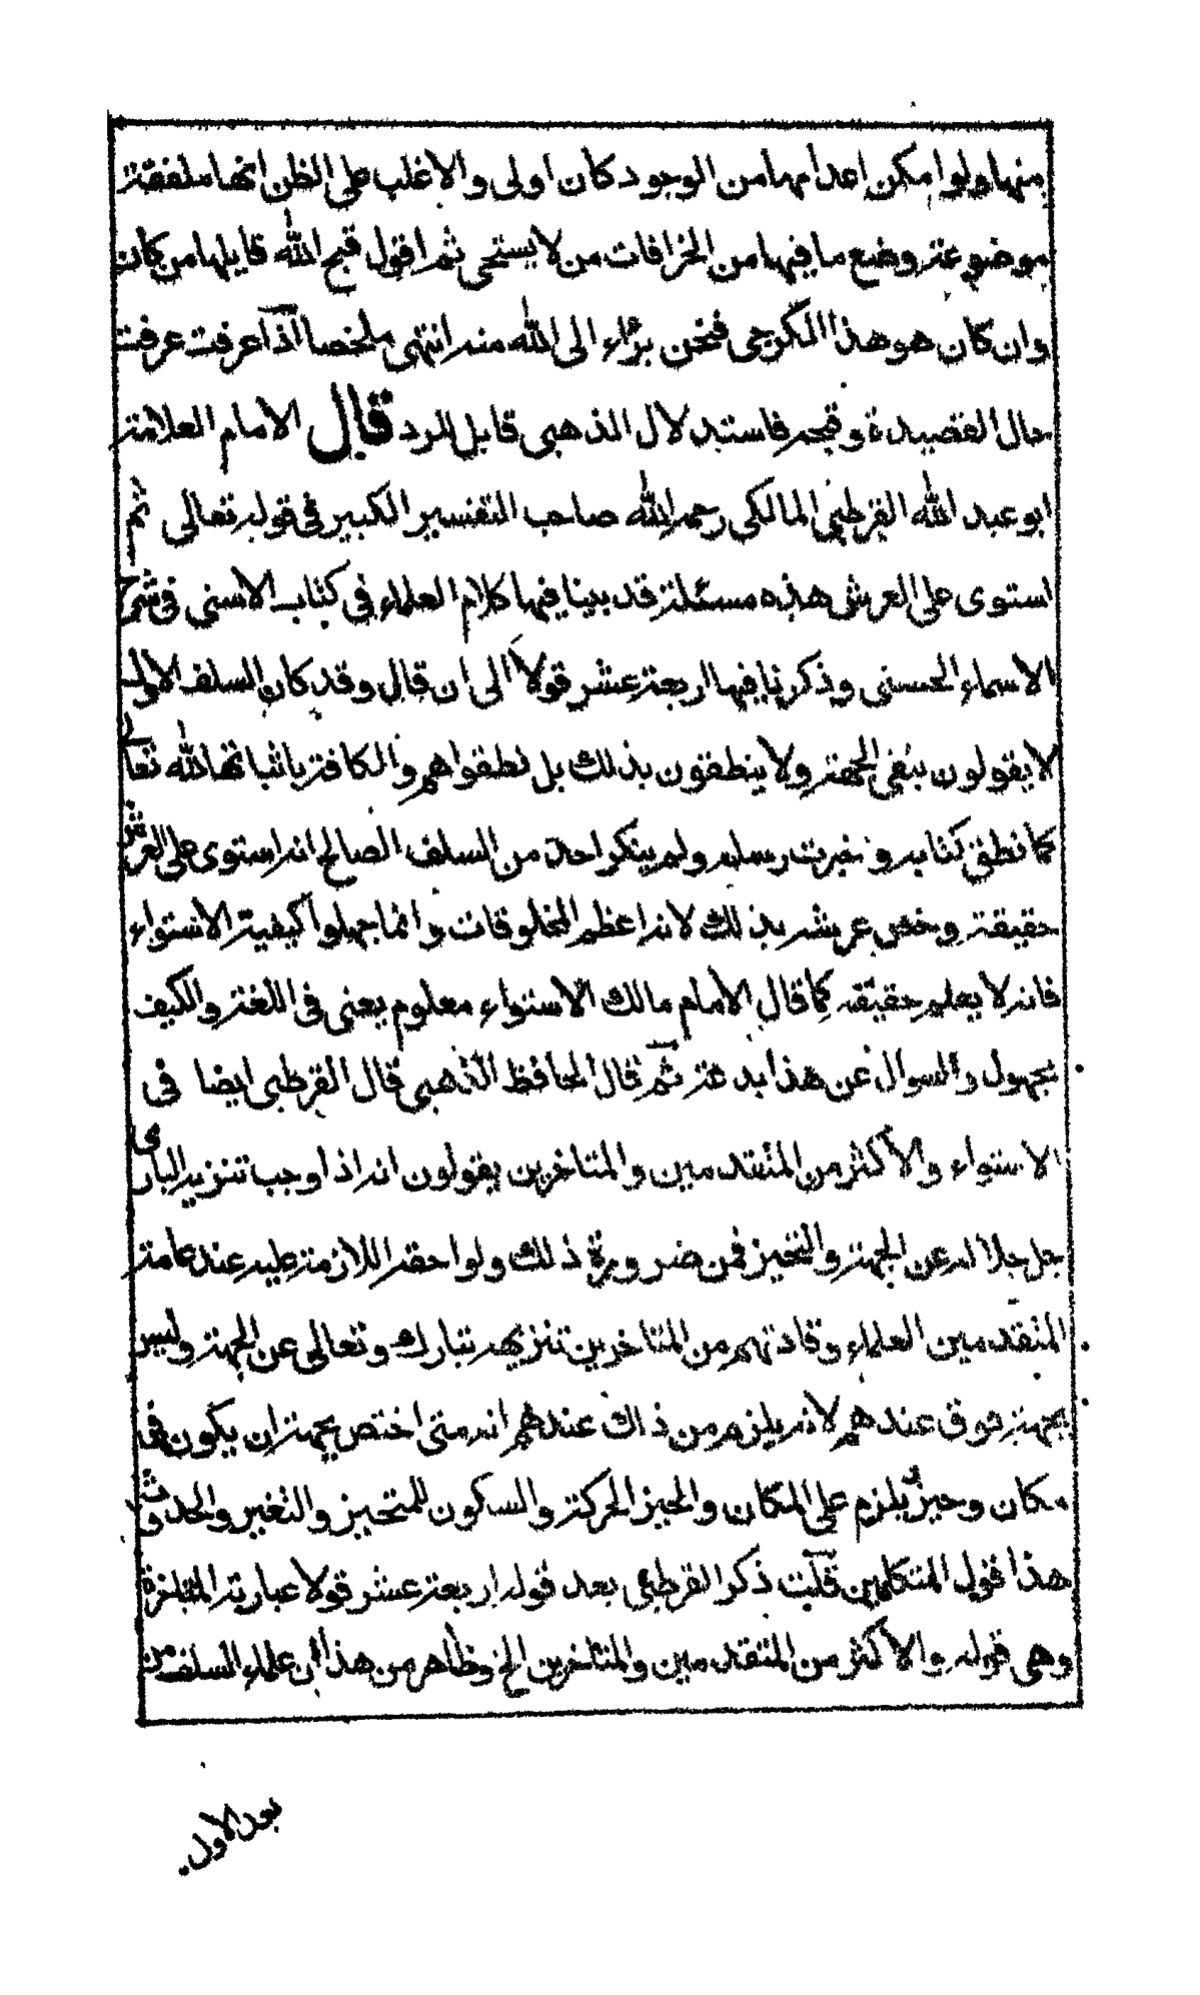 منها ولو امكن اعدامها من الوجود كان اولى والاغلب على الظن انها ملفقة
موضوعة وضع ما فيها من الخرافات من لا يستحى ثم اقول قبح الله قايلها من كان
وان كان هو هذا الكرجى فنحن برٓاء الى الله منه انتهى ملخصا اذا عرفت عرفت
حال القصيدة وقبحه فاستبدلال الذهبى قابل للرد قال الامام العلامة
ابو عبد الله القرطبى المالكى رحمه الله صاحب التفسير الكبير فى قوله تعالى ثم
استوى على العرش هذه مسئلة قد بينا فيها كلام العلماء فى كتاب الاسنى فى شرح
الاسماء الحسنى وذكرنا فيها اربعة عشر قولا الى ان قال وقد كان السلف الاول
لا يقولون بنفى الجهة ولا ينطقون بذلك بل نطقوا هم والكافة باثباتها لله تعالى
كما نطق كتابه وخبرت رسله ولم ينكر احد من السلف الصالح انه استوى على العرش
حقيقة وخص عرشه بذلك لانه اعظم المخلوقات وانما جهلوا كيفية الاستواء
فانه لا يعلم حقيقته كما قال الامام مالك الاستواء معلوم يعنى فى اللغة والكيف
مجهول والسوال عن هذا بدعة ثم قال الحافظ الذهبى قال القرطبى ايضا فى
الاستواء والاكثر من المتقدمين والمتاخرين يقولون انه اذا وجب تنزيه البارى
جل جلاله عن الجهة والتحيز فمن ضرورة ذلك ولواحقه اللازمة عليه عند عامة
المتقدمين العلماء وقادتهم من المتاخرين تنزيهه تبارك وتعالى عن الجهة وليس
بجهة فوق عندهم لانه يلزم من ذلك عندهم انه متى اختص بجهة ان يكون فى
مكان وحيز يلزم على المكان والحيز الحركة والسكون للمتحيز والتغير والحدوث
هذا قول المتكلمين قلت ذكر القرطبى بعد قوله اربعة عشر قولا عبارته
وهى قوله والاكثر من المتقدمين والمتاخرين الخ وظاهر من هذا ان علماء السلف من
بعد الاول